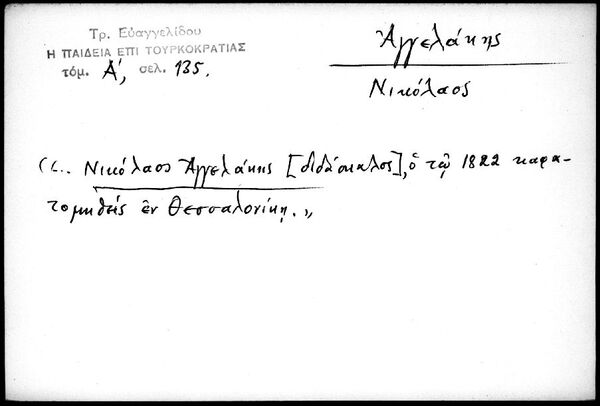 Τρ. Εὐαγγελίδου
Η ΠΑΙΔΕΙΑ ΕΠΙ ΤΟΥΡΚΟΚΡΑΤΙΑΣ
τόμ. Α', σελ. 135.
Ἀγγελάκης
Νικόλαος
«.. Νικόλαος Ἀγγελάκης [διδάσκαλος], ὁ τῷ 1822 καρα-
τομηθείς ἐν Θεσσαλονίκῃ.»